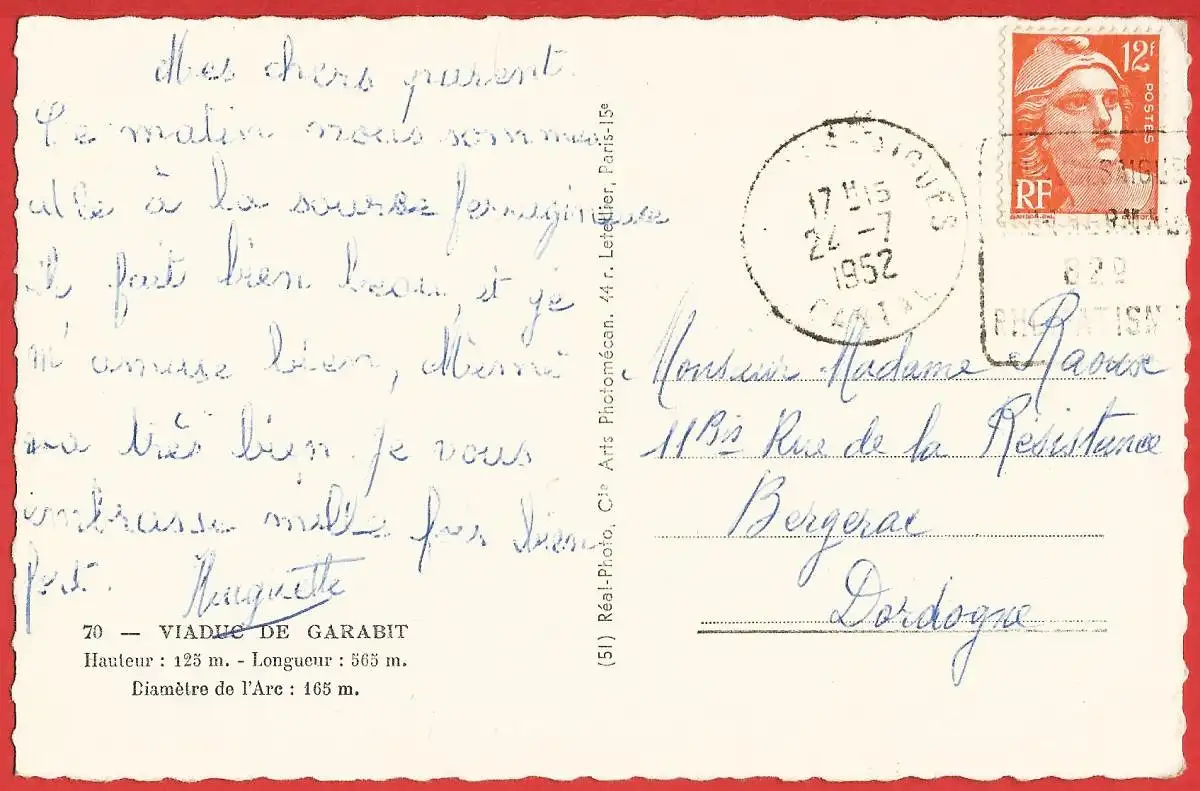 Mes chers parent.
Ce matin nous sommes
allé à la source ferrugineuse
il fait bien beau, et je
m'amuse bien, Mémé
va très bien je vous
embrasse mille fois bien
fort. Huguette
70 — VIADUC DE GARABIT
Hauteur : 125 m. - Longueur : 565 m.
Diamètre de l'Arc : 165 m.
(51) Réal-Photo, Cie Arts Photomécan. 44 r. Letellier, Paris-15e
12f
POSTES
RF
17 H 15
24 -7
1952
CANTAL
Monsieur Madame Raoux
11 Bis Rue de la Résistance
Bergerac
Dordogne